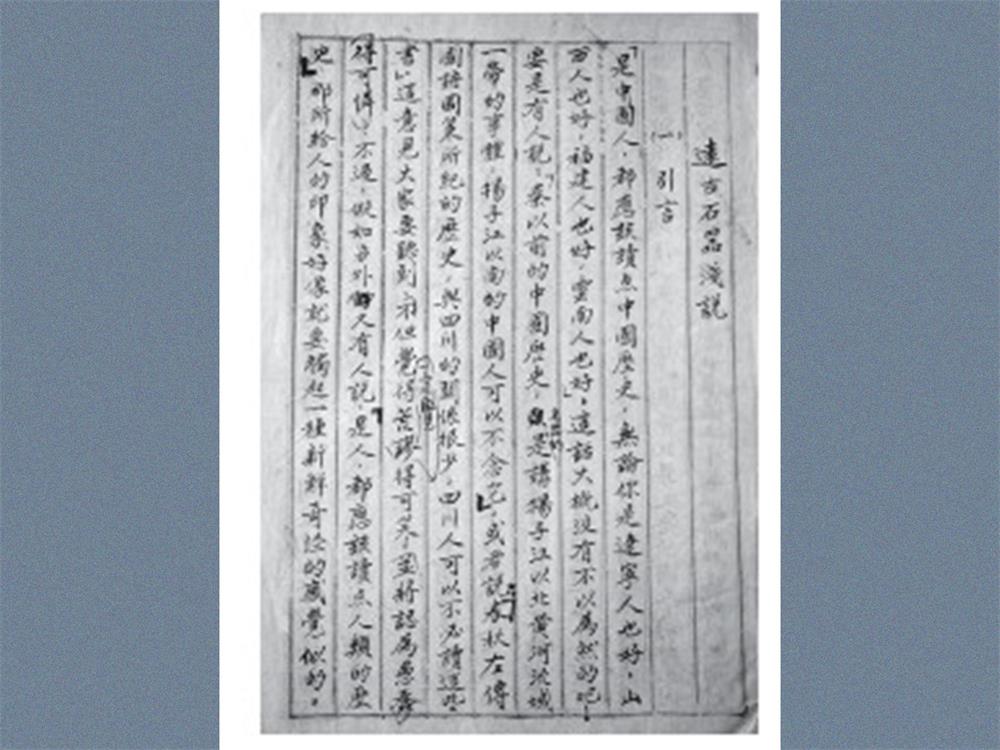 遠古石器淺説
(一)引言
「是中國人，都應該讀点中國歷史，無論你是遼寧人也好，山
西人也好，福建人也好，雲南人也好」。這話大概沒有不以爲然的吧！
要是有人説，「秦以前的中國歷史，是講揚子江以北黃河流域
一帶的事體，揚子江以南的中國人可以不念它」，或者説「春秋左傳
國語國策所紀的歷史，與四川的關係很少，四川人可以不必讀這些
書」，這意見大家要聽到，不但覺得荒謬得可笑，並將認爲愚蠢
得可憐！不過，假如另外又有人説，「是人，都應該讀点人類的歷
史」那所給人的印象好像就要觸起一種新鮮奇怪的感覺似的。